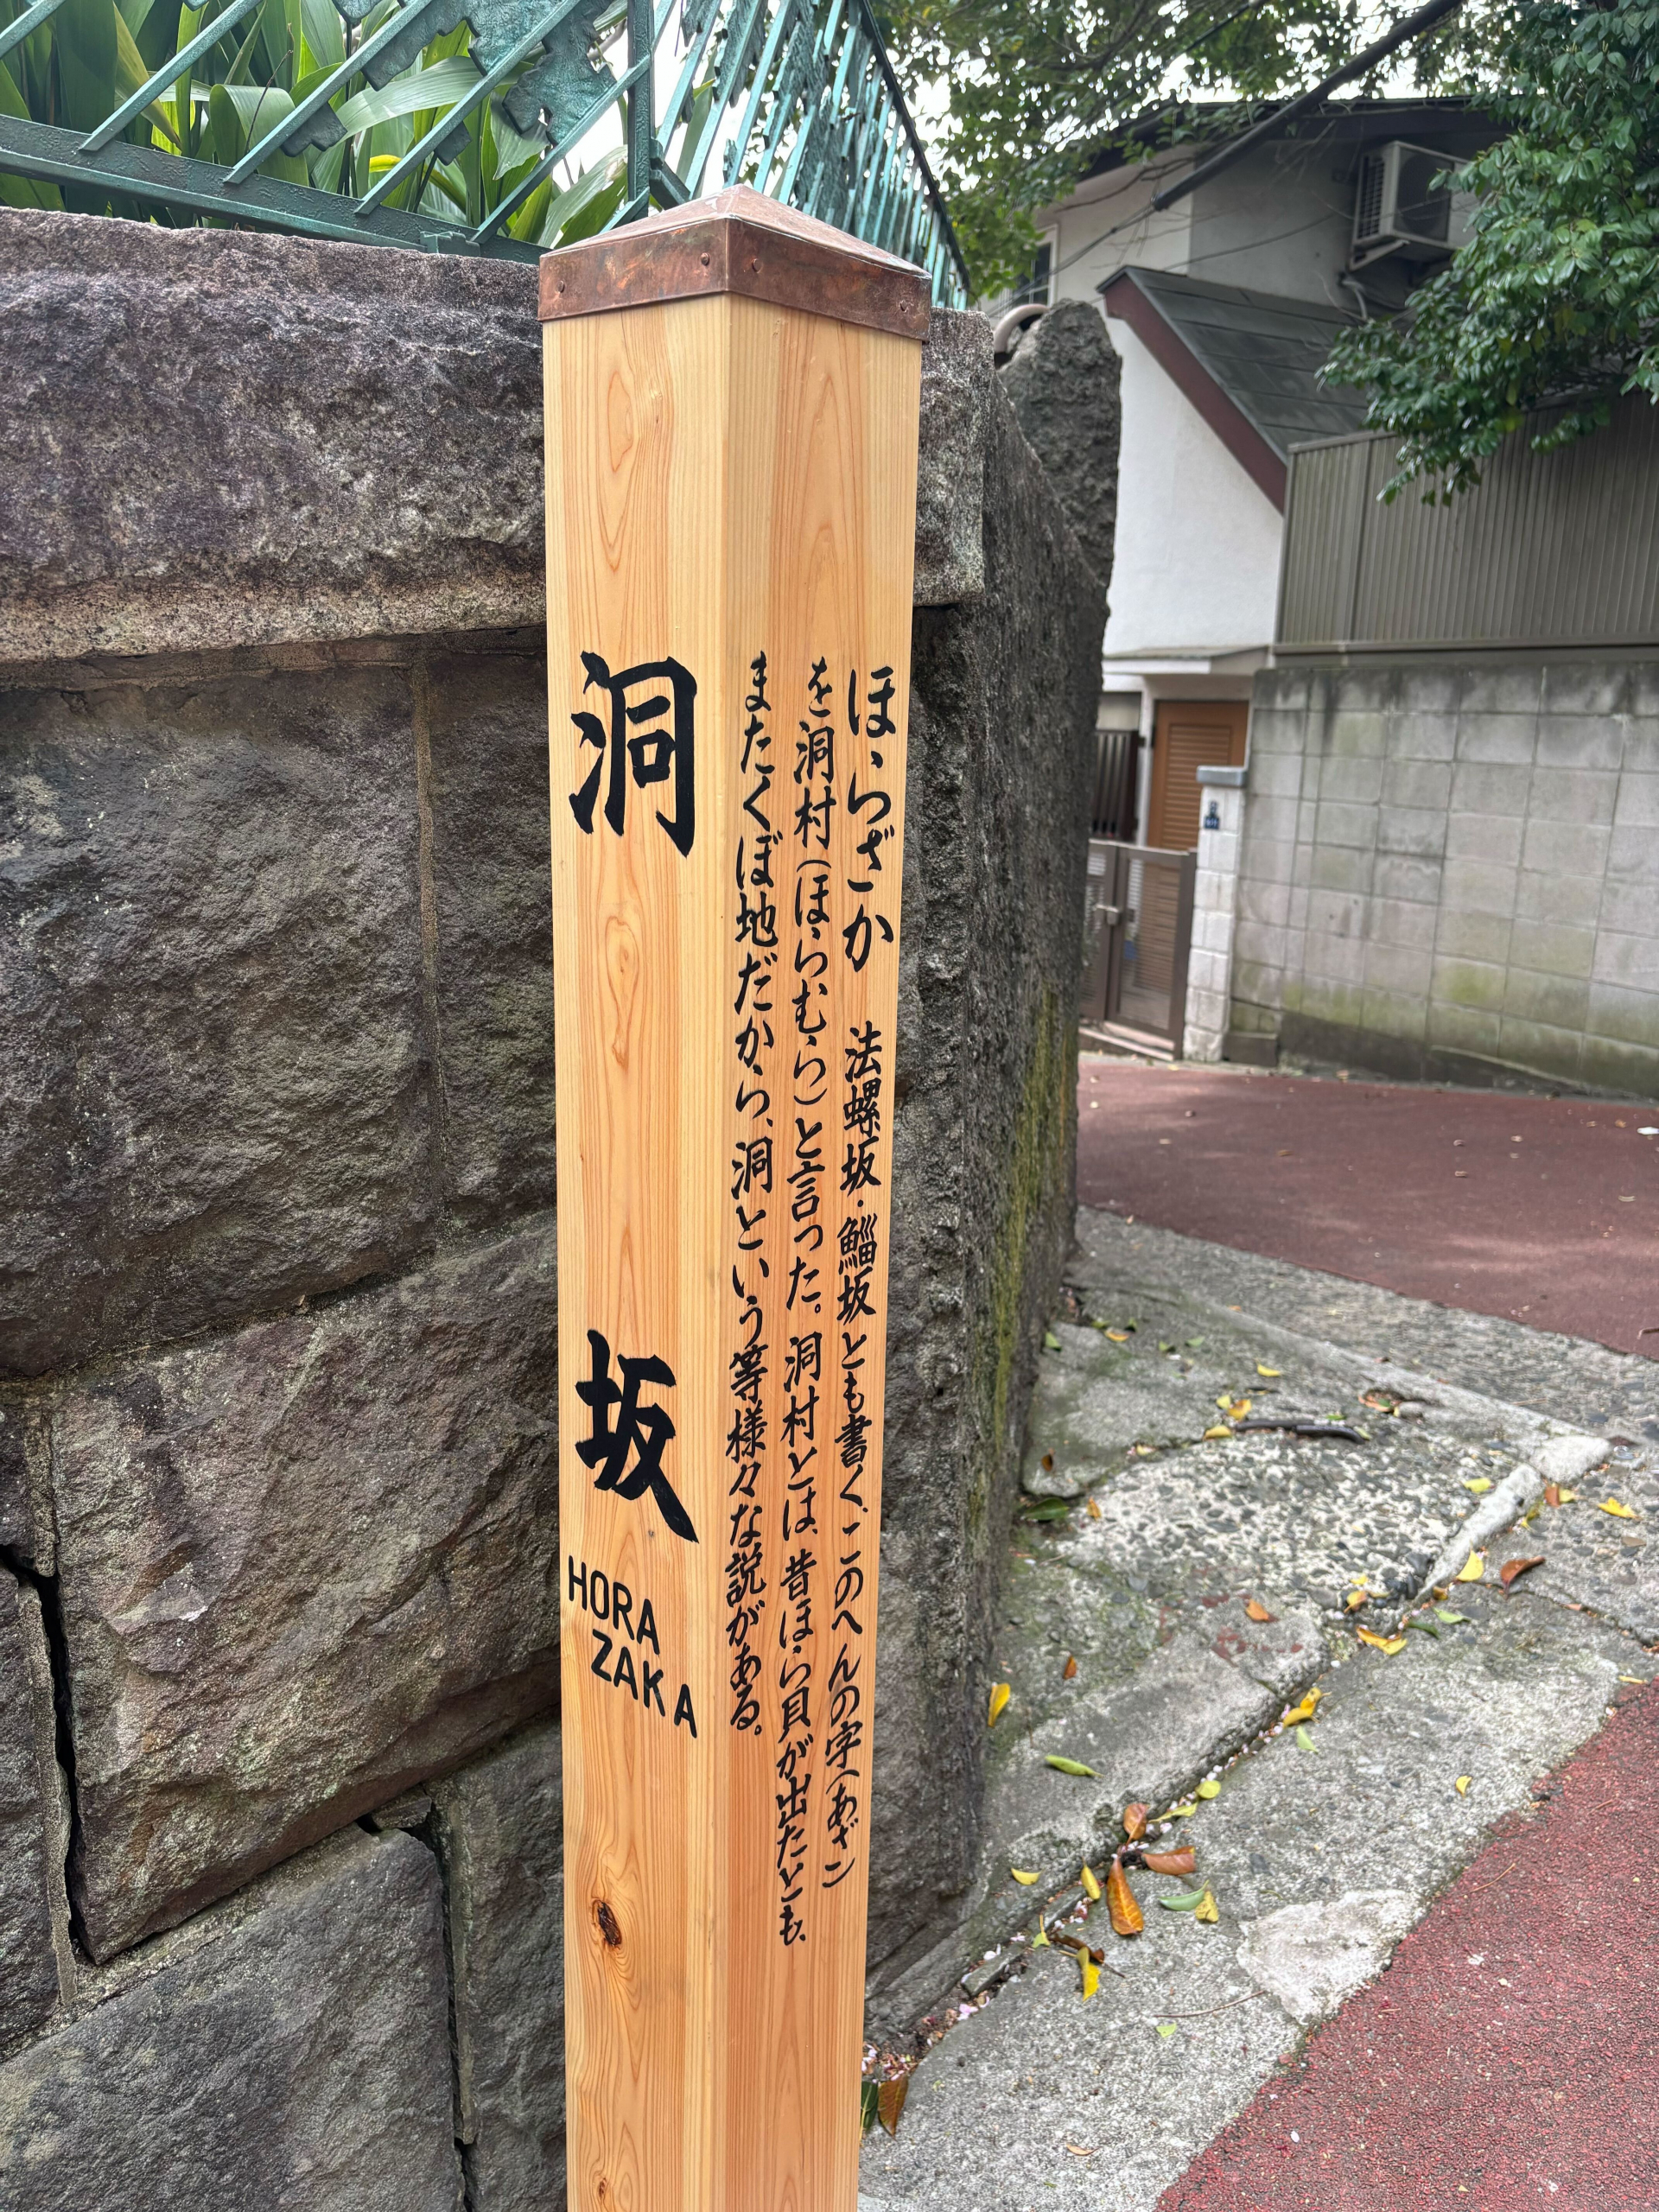 洞坂
HORA
ZAKA
ほらざか　法螺坂・鯔坂とも書く。このへんの字(あざ)
を洞村(ほらむら)と言った。洞村とは、昔ほら貝が出たとも、
またくぼ地だから、洞という等様々な説がある。